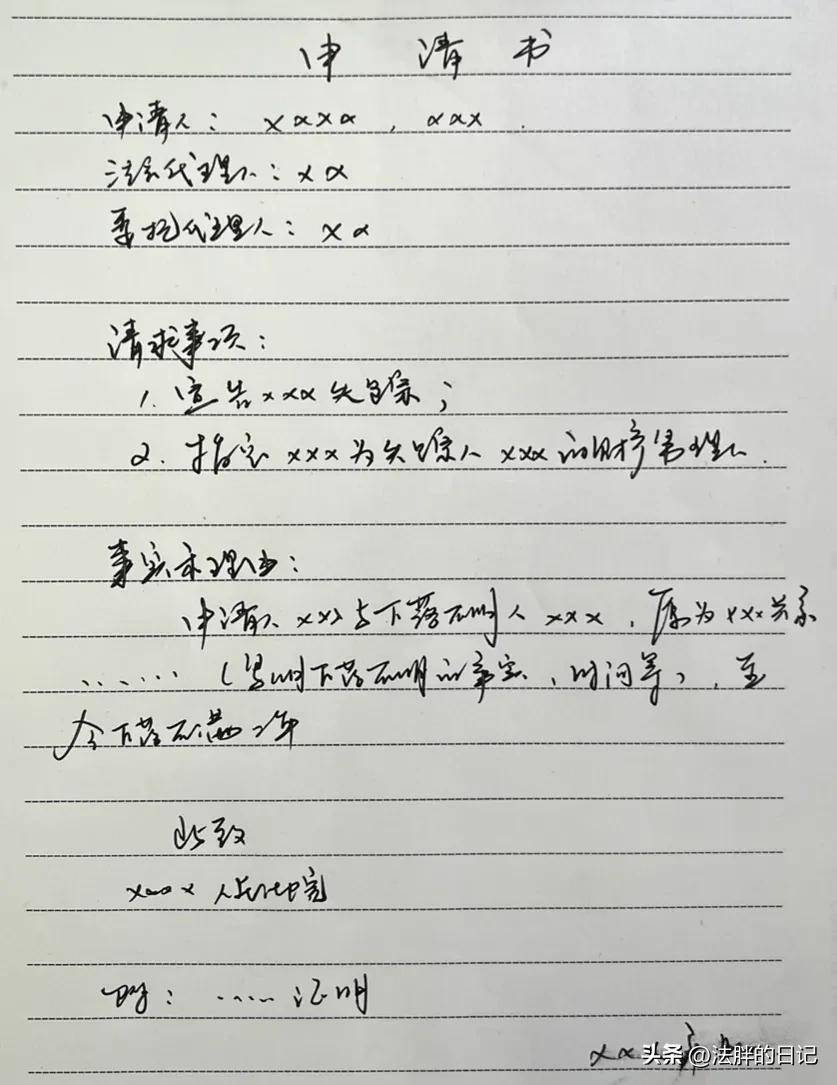 申请书
申请人：xxxx，xxx.
法定代理人：xx
委托代理人：xx
请求事项：
1. 宣告xxx失踪；
2. 指定xxx为失踪人xxx的财产管理人.
事实和理由：
申请人xxx与下落不明人xxx，系为xxx关系
......（写明下落不明的事实、时间等），至
今下落不满二年
此致
xxxx人民法院
附：.....证明
xx
头条@法胖的日记